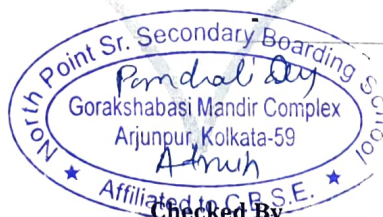 North Point Sr. Secondary Boarding School
Gorakshabasi Mandir Complex
Arjunpur, Kolkata-59
Affiliated to C.B.S.E.
Checked By